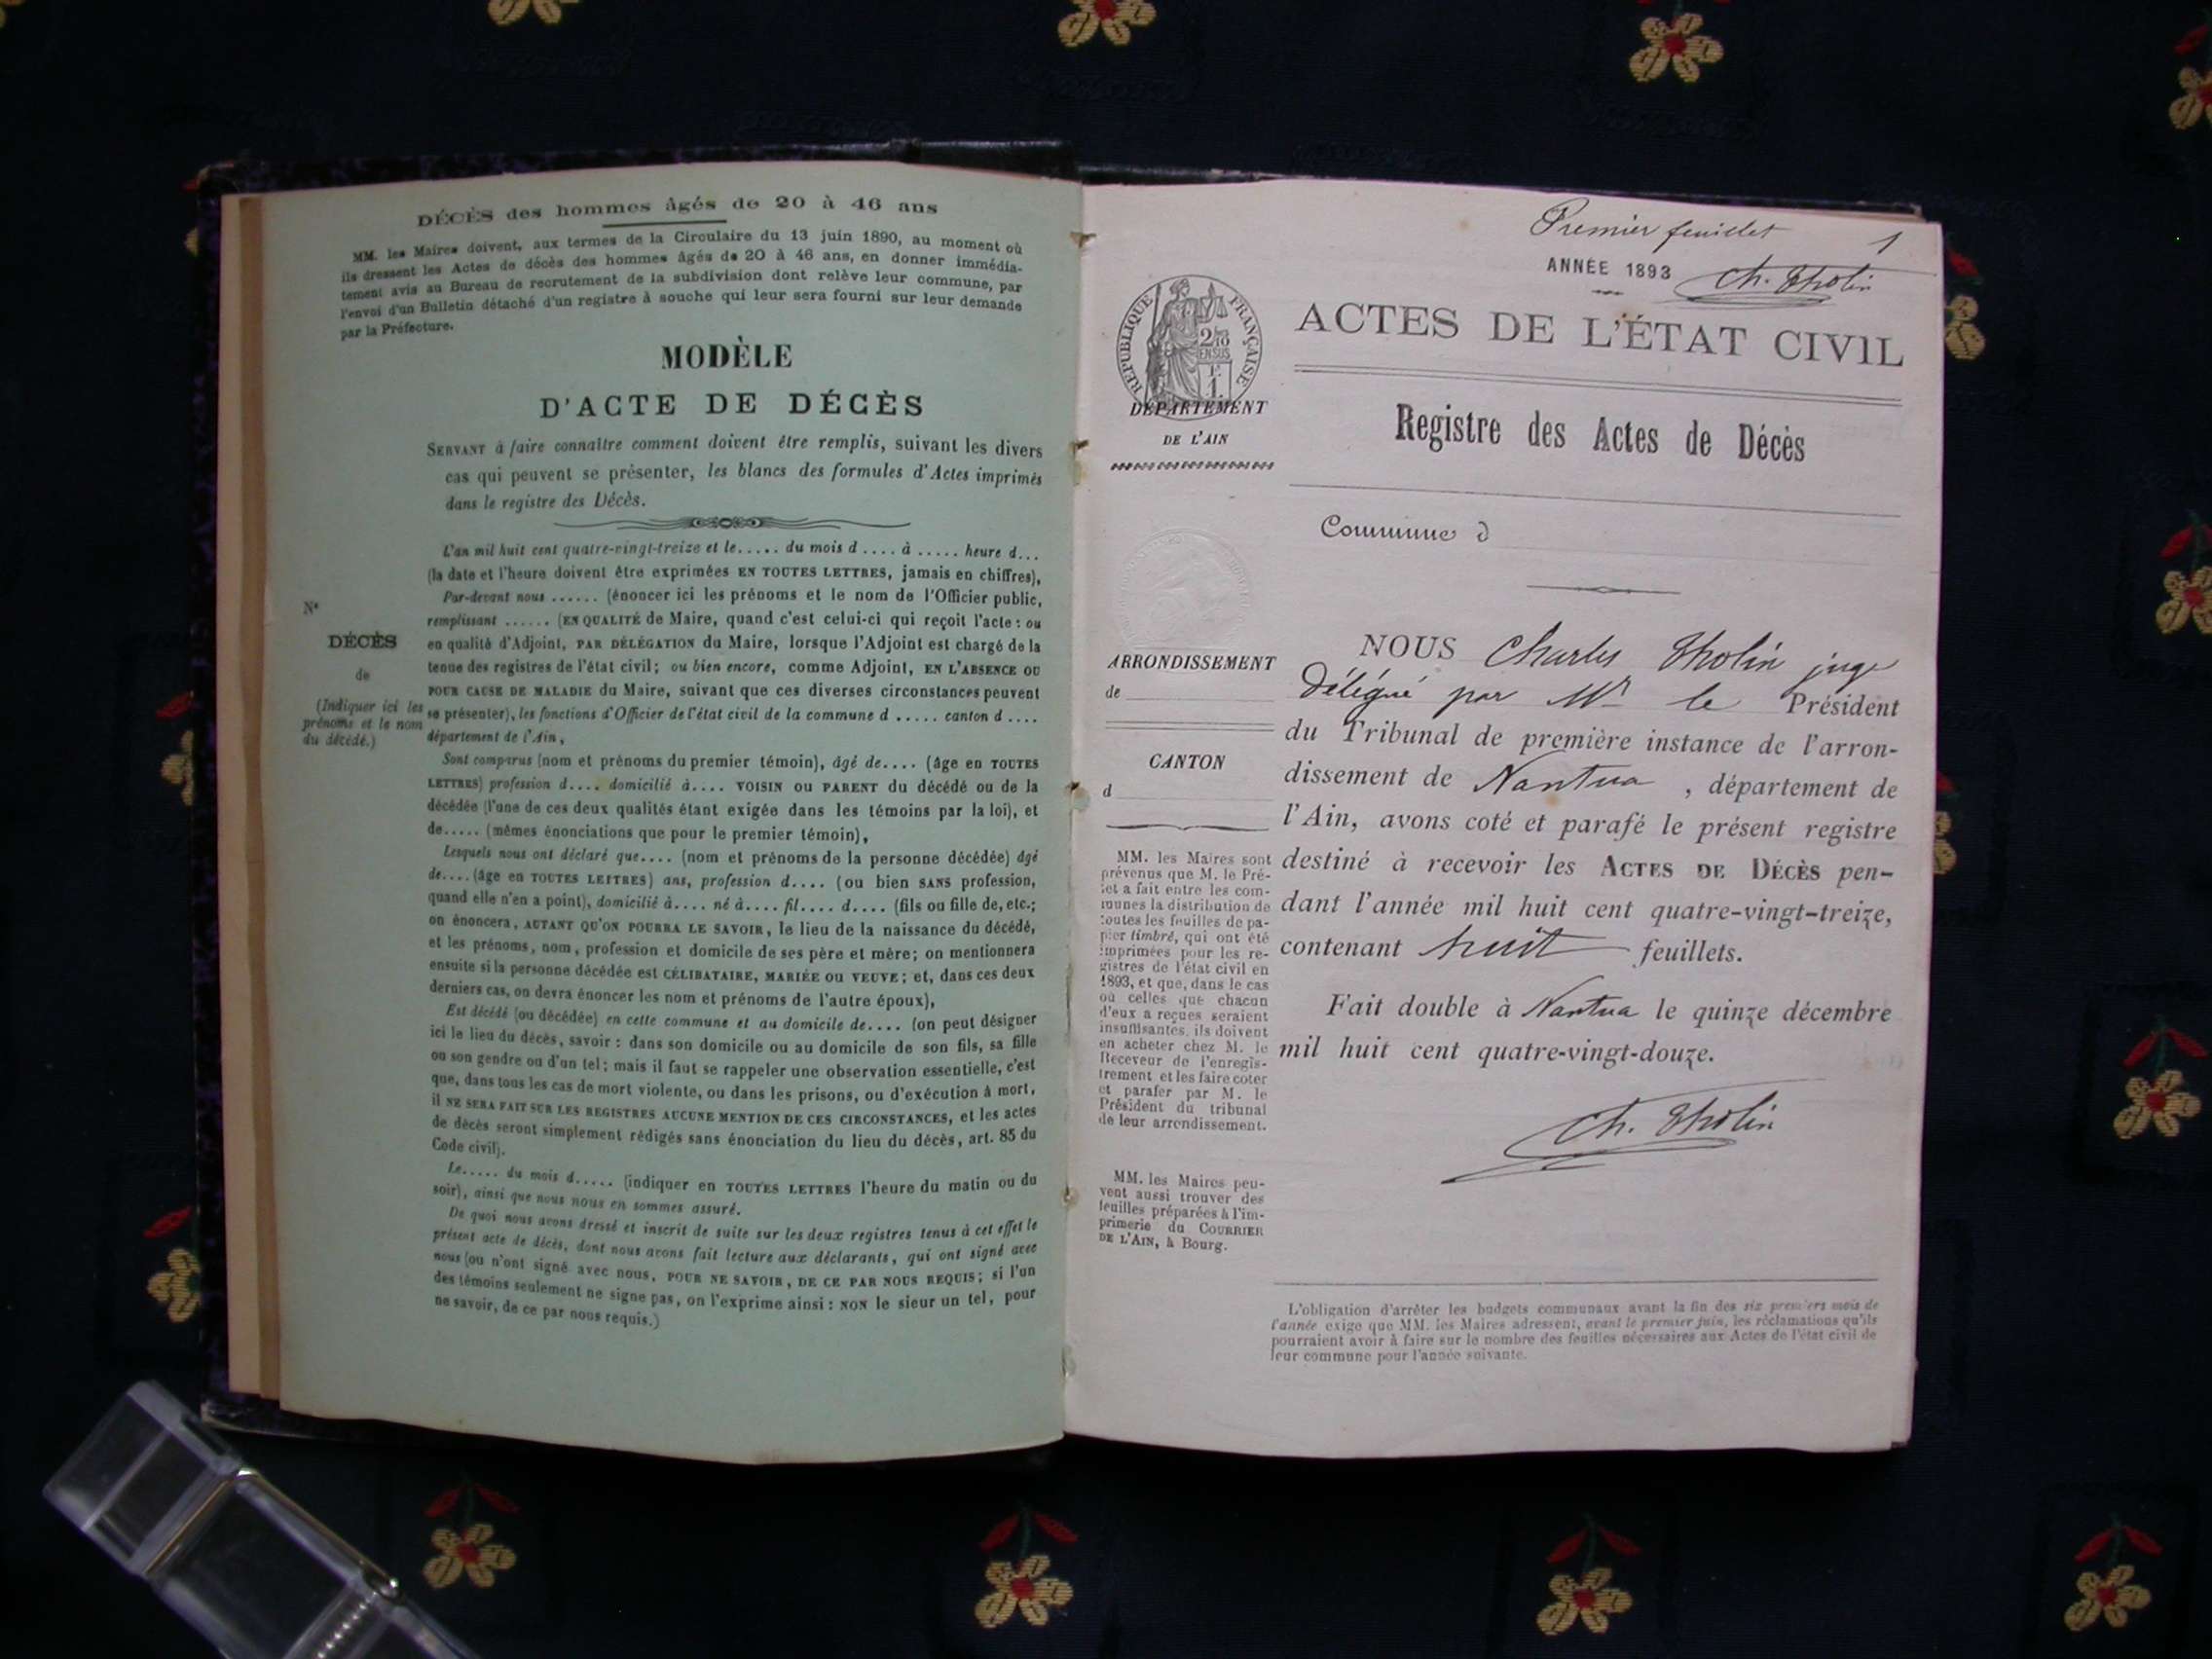 DÉCÈS des hommes âgés de 20 à 46 ans
MM. les Maires doivent, aux termes de la Circulaire du 13 juin 1890, au moment où
ils dressent les Actes de décès des hommes âgés de 20 à 46 ans, en donner immédia-
tement avis au Bureau de recrutement de la subdivision dont relève leur commune, par
l'envoi d'un Bulletin détaché d'un registre à souche qui leur sera fourni sur leur demande
par la Préfecture.
MODÈLE
D'ACTE DE DÉCÈS
SERVANT à faire connaître comment doivent être remplis, suivant les divers
cas qui peuvent se présenter, les blancs des formules d'Actes imprimés
dans le registre des Décès.
N°
DÉCÈS
de
(Indiquer ici les
prénoms et le nom
du décédé.)
L'an mil huit cent quatre-vingt-treize et le..... du mois d .... à ..... heure d...
(la date et l'heure doivent être exprimées EN TOUTES LETTRES, jamais en chiffres),
Par-devant nous ...... (énoncer ici les prénoms et le nom de l'Officier public,
remplissant ...... (EN QUALITÉ de Maire, quand c'est celui-ci qui reçoit l'acte : ou
en qualité d'Adjoint, PAR DÉLÉGATION du Maire, lorsque l'Adjoint est chargé de la
tenue des registres de l'état civil; ou bien encore, comme Adjoint, EN L'ABSENCE OU
POUR CAUSE DE MALADIE du Maire, suivant que ces diverses circonstances peuvent
se présenter), les fonctions d'Officier de l'état civil de la commune d ..... canton d ....
département de l'Ain,
Sont comparus (nom et prénoms du premier témoin), âgé de.... (âge en TOUTES
LETTRES) profession d.... domicilié à.... VOISIN OU PARENT du décédé ou de la
décédée (l'une de ces deux qualités étant exigée dans les témoins par la loi), et
de..... (mêmes énonciations que pour le premier témoin),
Lesquels nous ont déclaré que.... (nom et prénoms de la personne décédée) âgé
de.... (âge en TOUTES LETTRES) ans, profession d.... (ou bien SANS profession,
quand elle n'en a point), domicilié à.... né à.... fil.... d.... (fils ou fille de, etc.;
on énoncera, AUTANT QU'ON POURRA LE SAVOIR, le lieu de la naissance du décédé,
et les prénoms, nom, profession et domicile de ses père et mère; on mentionnera
ensuite si la personne décédée est CÉLIBATAIRE, MARIÉE OU VEUVE; et, dans ces deux
derniers cas, on devra énoncer les nom et prénoms de l'autre époux),
Est décédé (ou décédée) en cette commune et au domicile de.... (on peut désigner
ici le lieu du décès, savoir : dans son domicile ou au domicile de son fils, sa fille
ou son gendre ou d'un tel; mais il faut se rappeler une observation essentielle, c'est
que, dans tous les cas de mort violente, ou dans les prisons, ou d'exécution à mort,
il NE SERA FAIT SUR LES REGISTRES AUCUNE MENTION DE CES CIRCONSTANCES, et les actes
de décès seront simplement rédigés sans énonciation du lieu du décès, art. 85 du
Code civil).
Le..... du mois d..... (indiquer en TOUTES LETTRES l'heure du matin ou du
soir), ainsi que nous nous en sommes assuré.
De quoi nous avons dressé et inscrit de suite sur les deux registres tenus à cet effet le
présent acte de décès, dont nous avons fait lecture aux déclarants, qui ont signé avec
nous (ou n'ont signé avec nous, POUR NE SAVOIR, DE CE PAR NOUS REQUIS; si l'un
des témoins seulement ne signe pas, on l'exprime ainsi : NON le sieur un tel, pour
ne savoir, de ce par nous requis.)
Premier feuillet 1
ANNÉE 1893 Ch. Tholin
RÉPUBLIQUE FRANÇAISE
2/10
EN SUS
F
1
DÉPARTEMENT
DE L'AIN
ACTES DE L'ÉTAT CIVIL
Registre des Actes de Décès
Commune d
ARRONDISSEMENT
de
CANTON
d
MM. les Maires sont
prévenus que M. le Pré-
fet a fait entre les com-
munes la distribution de
toutes les feuilles de pa-
pier timbré, qui ont été
imprimées pour les re-
gistres de l'état civil en
1893, et que, dans le cas
où celles que chacun
d'eux a reçues seraient
insuffisantes, ils doivent
en acheter chez M. le
Receveur de l'enregis-
trement et les faire coter
et parafer par M. le
Président du tribunal
de leur arrondissement.
MM. les Maires peu-
vent aussi trouver des
feuilles préparées à l'im-
primerie du COURRIER
DE L'AIN, à Bourg.
NOUS Charles Tholin juge
délégué par Mr le Président
du Tribunal de première instance de l'arron-
dissement de Nantua, département de
l'Ain, avons coté et parafé le présent registre
destiné à recevoir les ACTES DE DÉCÈS pen-
dant l'année mil huit cent quatre-vingt-treize,
contenant huit feuillets.
Fait double à Nantua le quinze décembre
mil huit cent quatre-vingt-douze.
Ch. Tholin
L'obligation d'arrêter les budgets communaux avant la fin des six premiers mois de
l'année exige que MM. les Maires adressent, avant le premier juin, les réclamations qu'ils
pourraient avoir à faire sur le nombre des feuilles nécessaires aux Actes de l'état civil de
leur commune pour l'année suivante.